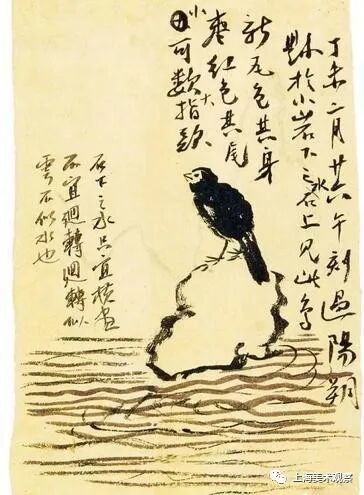 丁未二月廿六午刻過陽朔
縣於小岩下之水石上見此鳥
新瓦色其身
棗紅色其尾大
小可數指
石下之水只宜橫畫
不宜迴轉迴轉似
雲不似水也
上海美术观察